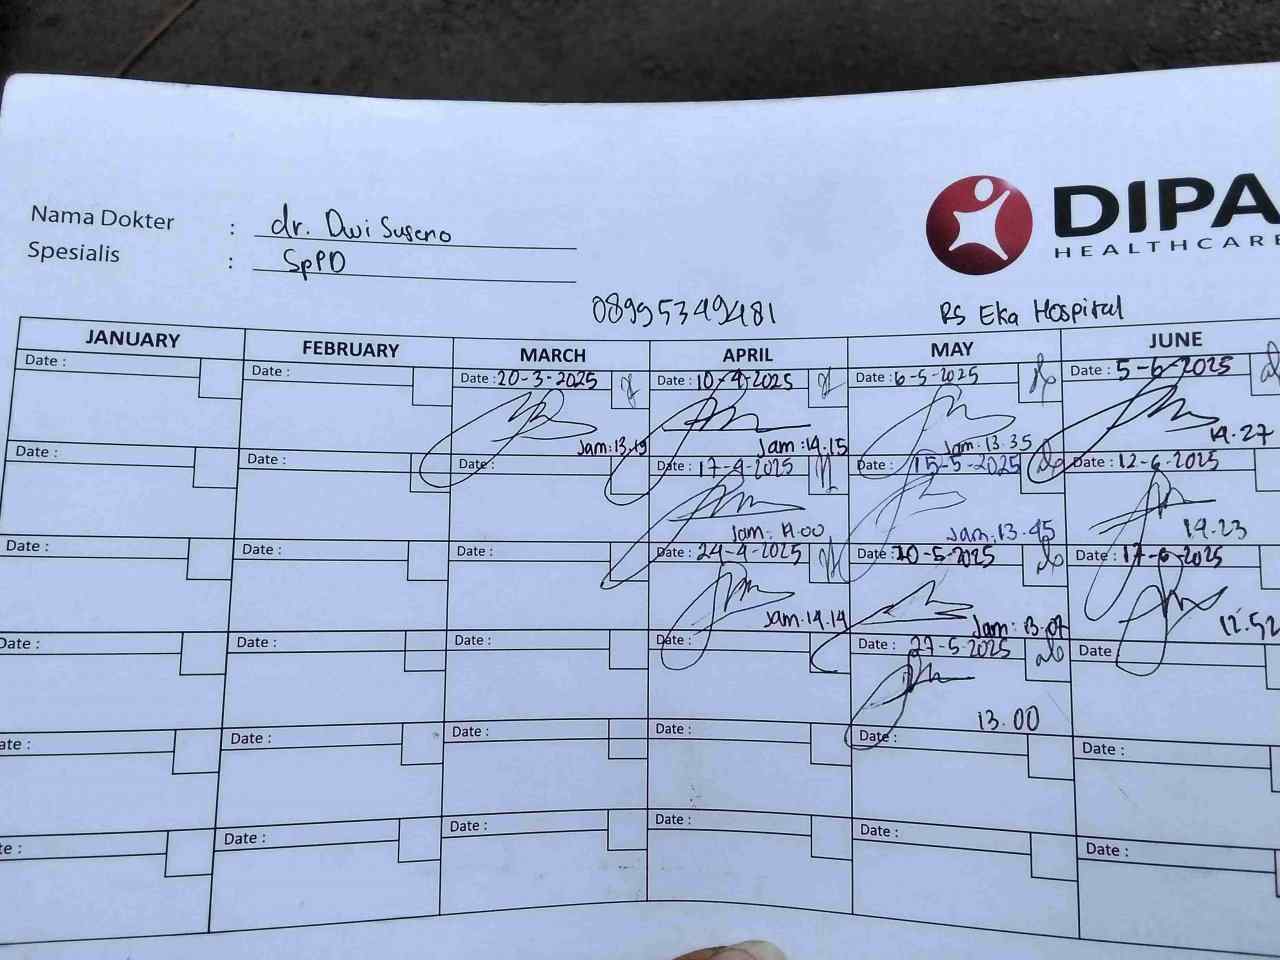 DIPA
HEALTHCARE
Nama Dokter : dr. Dwi Suseno
Spesialis : SpPD
08995349481 RS Eka Hospital
JANUARY FEBRUARY MARCH APRIL MAY JUNE
Date : Date : Date : 20-3-2025 Date : 10-4-2025 Date : 6-5-2025 Date : 5-6-2025
Jam : 13.19 Jam : 14.15 Jam : 13.35 14.27
Date : Date : Date : Date : 17-4-2025 Date : 15-5-2025 Date : 12-6-2025
Jam : 14.00 Jam : 13.45 14.23
Date : Date : Date : Date : 24-4-2025 Date : 20-5-2025 Date : 17-6-2025
Jam : 14.14 Jam : 13.07 12.52
Date : Date : Date : Date : Date : 27-5-2025 Date
13.00
ate : Date : Date : Date : Date : Date :
te : Date : Date : Date : Date : Date :